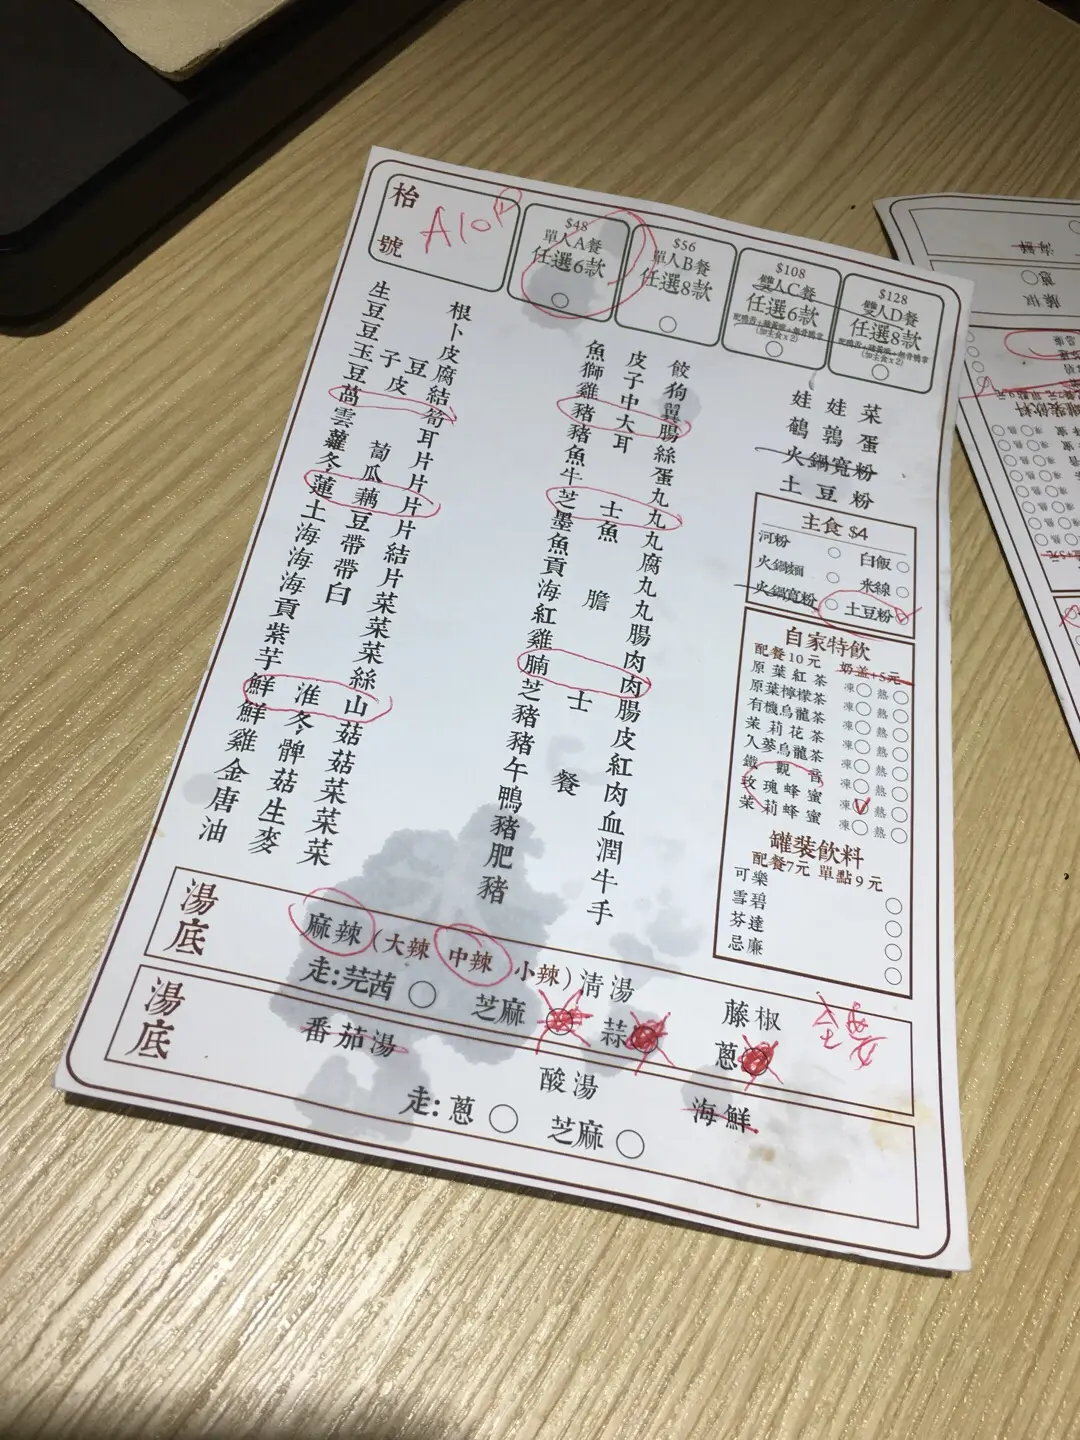 枱號 A10
$48
單人A餐
任選6款
$56
單人B餐
任選8款
$108
雙人C餐
任選6款
(加主食x2)
$128
雙人D餐
任選8款
(加主食x2)
生根
豆卜
豆皮
玉子豆腐
豆皮結
萵筍
雲耳
蘿蔔片
冬瓜片
蓮藕片
土豆片
海帶結
海帶片
海白菜
貢菜
紫菜
芋絲
鮮淮山
鮮冬菇
雞髀菇
金菇菜
唐生菜
油麥菜
魚皮餃
獅子狗
雞中翼
豬大腸
豬耳絲
魚蛋
牛丸
芝士丸
墨魚丸
魚腐
貢丸
海膽丸
紅腸
雞肉
腩肉
芝士腸
豬皮
豬紅
午餐肉
鴨血
豬潤
肥牛
豬手
娃娃菜
鵪鶉蛋
火鍋寬粉
土豆粉
主食 $4
河粉 白飯
火鍋麵 米線
火鍋寬粉 土豆粉
自家特飲
配餐10元 奶盖+5元
原葉紅茶 凍 熱
原葉檸檬茶 凍 熱
有機烏龍茶 凍 熱
茉莉花茶 凍 熱
入蔘烏龍茶 凍 熱
鐵觀音 凍 熱
玫瑰蜂蜜 凍 熱
茉莉蜂蜜 凍 熱
罐裝飲料
配餐7元 單點9元
可樂
雪碧
芬達
忌廉
湯底 麻辣(大辣 中辣 小辣) 清湯 藤椒
走:芫茜 芝麻 蒜 蔥
湯底 番茄湯 酸湯 海鮮
走:蔥 芝麻